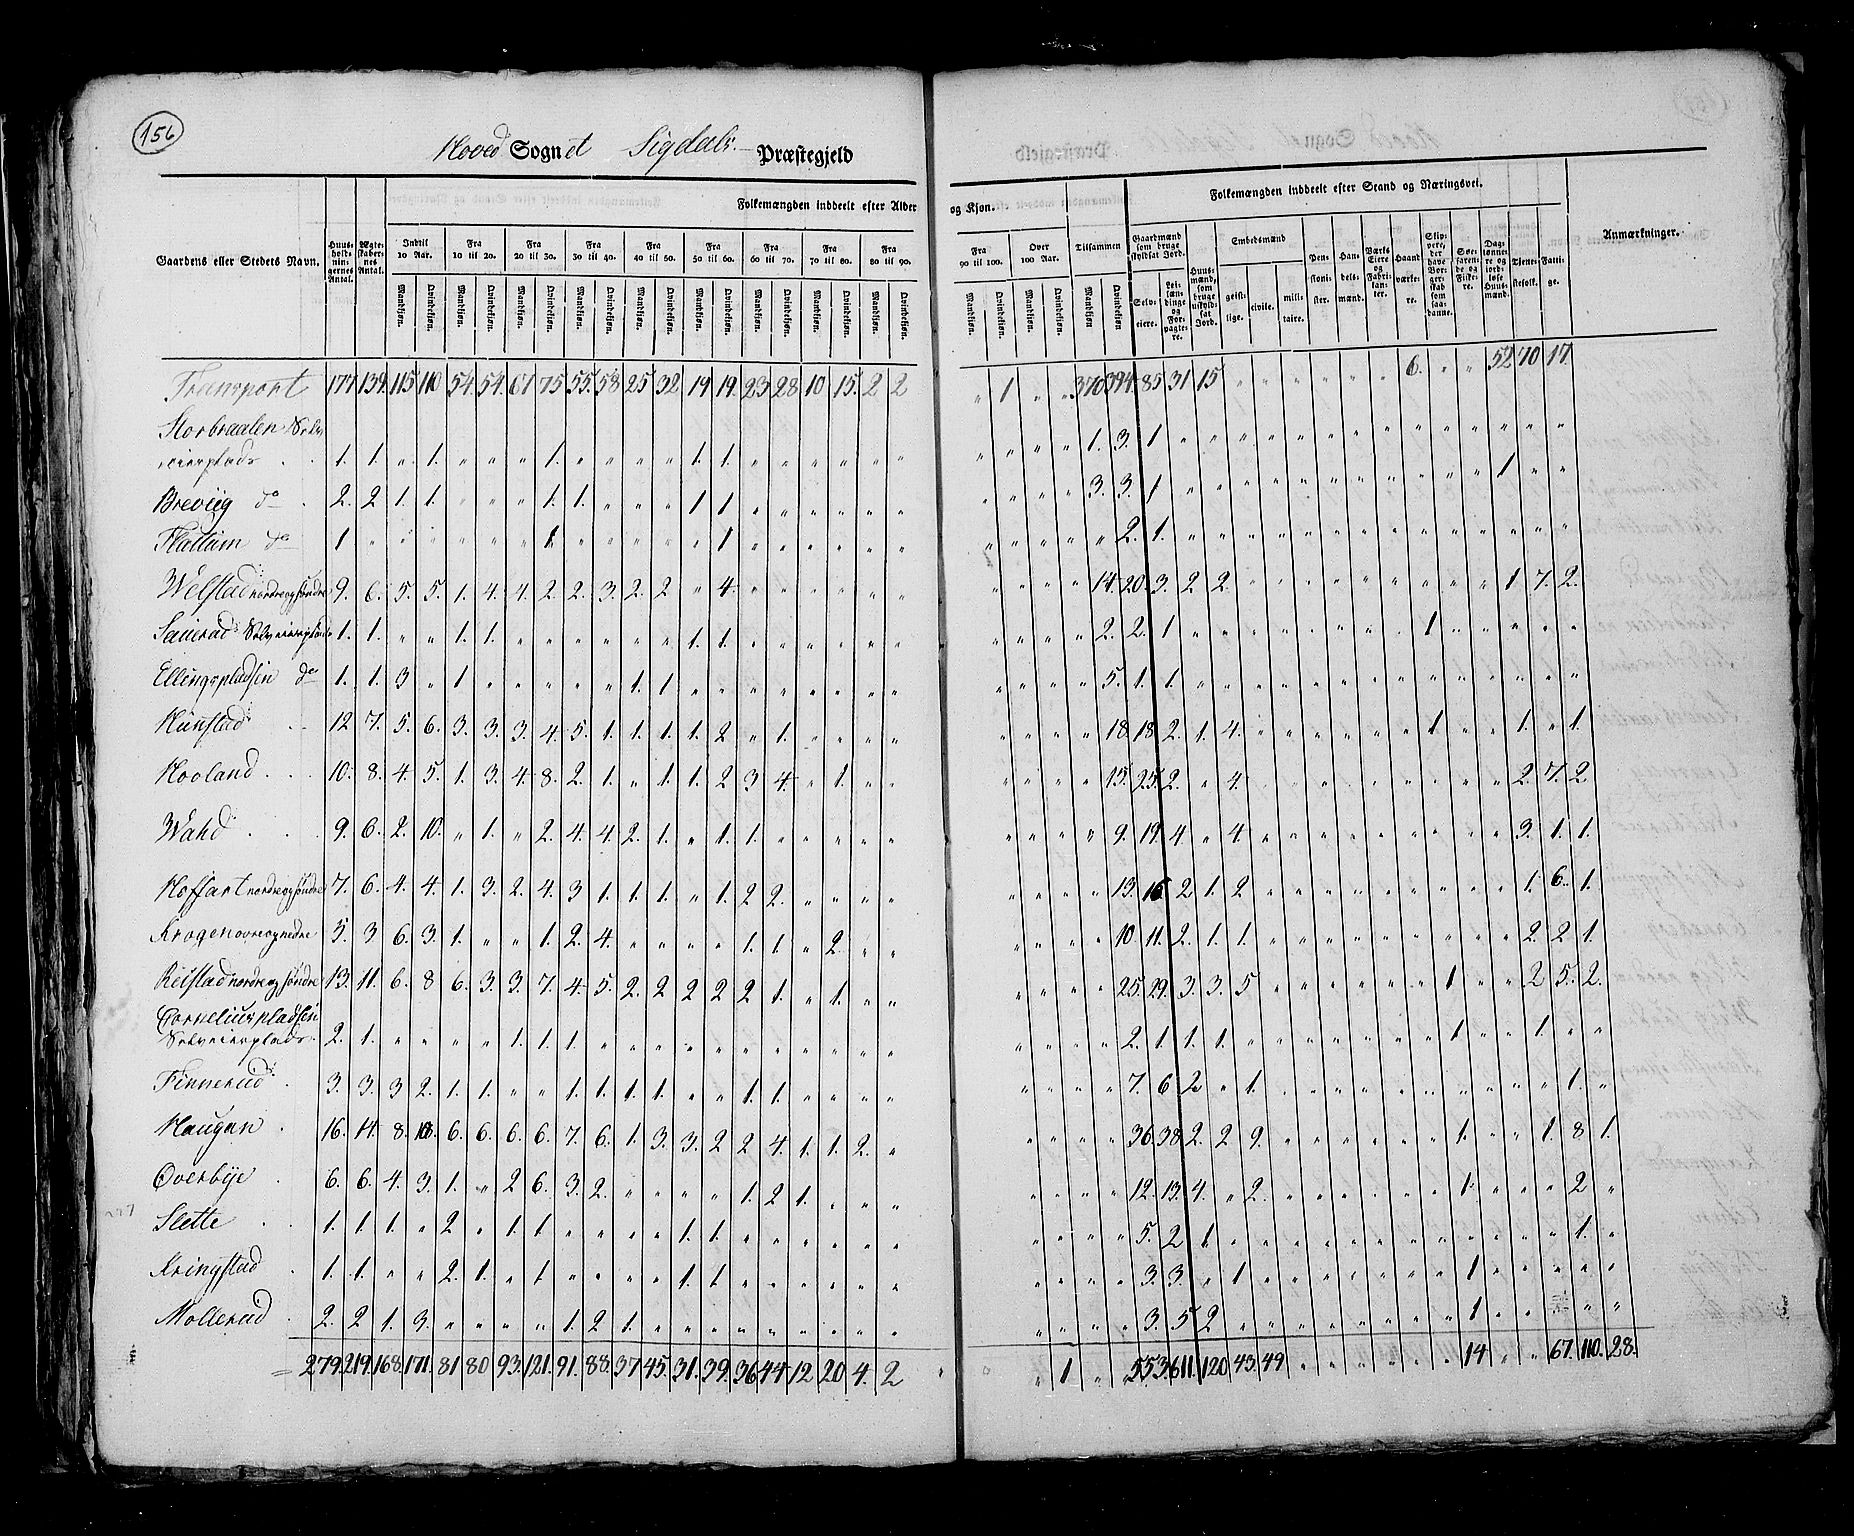 156
Hoved Sognet Sigdals Præstegjeld
Folkemængden inddeelt efter Alder og Kjøn.
Folkemængden inddeelt efter Stand og Næringsvei.
Gaardens eller Stedets Navn.
Huusholdningernes Antal.
Ægteskabernes Antal.
Indtil 10 Aar.
Fra 10 til 20.
Fra 20 til 30.
Fra 30 til 40.
Fra 40 til 50.
Fra 50 til 60.
Fra 60 til 70.
Fra 70 til 80.
Fra 80 til 90.
Fra 90 til 100.
Over 100 Aar.
Tilsammen
Mandkjøn. Qvindekjøn.
Gaardmænd som bruge skyldsat Jord.
Selveiere.
Leilændinge og Forpagtere.
Huusmænd, som bruge uskyldsat Jord.
Embedsmænd
geistlige. civile. militaire.
Pensionister.
Handelsmænd.
Værks Eiere og Fabrikanter.
Haandværkere.
Søefarende og Fiskere.
Daglønnere og jordløse Huusmænd.
Tjenestefolk.
Fattige.
Anmærkninger.
Transport 177. 139. 115. 110 54. 54. 67 75 55. 58 25 32. 19 19. 23 28 10 15. 2 2 " 1 " " 370 394. 85 31 15 " " " " " " 6. " " 52 70 17.
Storbraaten Selv
eierplads 1. 1. " 1. " " " 1. " " " " 1. 1. " " " " " " " " " " 1. 3. 1 " " " " " " " " " " " " "
Breviig do 2. 2 1. 1. " " " 1. 1. " " " 1 1 " " " " " " " " " " 3. 3. 1 " " " " " " " " " " 1 " "
Flattum do 1 " " " " " " 1 " " " " " 1 " " " " " " " " " " " 2. 1. " " " " " " " " " " " " "
Welstad nordre og søndre 9. 6. 5. 5. 1. 4. 4. 2. 2. 3. 2. 2 " 4. " " " " " " " " " " 14. 20. 3. 2 2. " " " " " " " " " 1 7. 2.
Sauerud Selveierplads 1. 1. " " 1. 1. " " " " " " 1. 1. " " " " " " " " " " 2. 2. 1 " " " " " " " " 1 " " " " "
Ellingspladsen do 1. 1. 3 " 1 " " " " " 1. 1. " " " " " " " " " " " " 5. 1. 1. " " " " " " " " " " " " "
Hunstad 12 7. 5. 6. 3. 3. 3. 4. 5. 1. 1. 1. 1. 2 " 1. " " " " " " " " 18. 18. 2. 1. 4. " " " " " " 1 " " 1. " 1.
Hooland 10. 8. 4. 5. 1. 3. 4. 8. 2. 1. " 1. 1. 2 3 4. " 1. " " " " " " 15. 25. 2. " 4. " " " " " " " " " 2. 7. 2.
Wahd 9. 6. 2. 10. " 1. " 2. 4. 4. 2. 1. " 1. 1. " " " " " " " " " 9. 19. 4 " 4. " " " " " " " " " 3. 1. 1.
Hoffart nordre og søndre 7. 6. 4. 4. 1. 3. 2. 4. 3 1. 1. 1. " 1. 2 2. " " " " " " " " 13. 16 2 1. 2 " " " " " " " " " 1. 6. 1.
Krogen øvre og nedre 5. 3 6. 3. 1. " " 1. 2. 4. " " " " 1. 1. " 2. " " " " " " 10. 11. 2. 1. 1. " " " " " " " " " 2. 2 1.
Reistad nordre og søndre 13. 11. 6. 8 6. 3. 3. 7. 4. 5. 2. 2 2 2 2 1. " 1. " " " " " " 25. 29. 3. 3. 5 " " " " " " 1 " " 2 5. 2.
Corneliuspladsen
Selveierplads 2. 1. " " " " 1. 1. 1. " " " " " " " " " " " " " " " 2. 1. 1. 1. " " " " " " 1 " " 1. " "
Finnerud 3. 3. 3 2. 1. 1. " " 1. 1. 1. 1. " " 1. 1. " " " " " " " " 7. 6 2 " 1. " " " " " " " " " " 1. "
Haugen 16. 14. 8. 10. 6. 6. 6. 6. 7. 6. 1. 3. 3. 2 2 4. 1. 1. 2. " " " " " 36. 38 2. 2 9. " " " " " " 1. " " 1. 8 1.
Overbye 6. 6. 4. 3. 1. " 2 6. 3. 2. " " " " 1. 2 1. " " " " " " " 12. 13. 4. " 2. " " " " " " 1. " " " 2 "
Slette 1. 1. 1. " 2 " 1. 1. " " " " 1. 1. " " " " " " " " " " 5. 2 1 " " " " " " " " " " " " 1. "
Kringstad 1. 1. " " 2. 1. " 1 " " " " 1. 1. " " " " " " " " " " 3. 3. " 1 " " " " " " 1 " " " " "
Mollerud 2. 2 1. 3. " " " " 1. 2 1. " " " " " " " " " " " " " 3. 5 2 " " " " " " " 1 " " " " "
279. 219. 168. 171. 81 80 93. 121. 91. 88. 37 45. 31. 39. 36 44 12 20 4. 2 " 1 " " 553. 611. 120 43. 49 " " " " " " 14 " " 67. 110. 28.